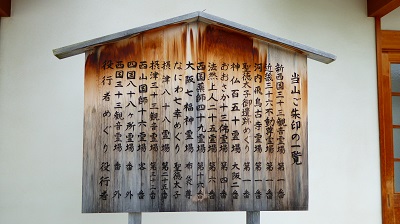 当山ご朱印の一覧
新西国三十三観音霊場 客番
近畿三十六不動尊霊場 第一番
河内飛鳥古寺霊場 第一番
聖徳太子御遺跡めぐり 第一番
神仏百五十霊場 大阪二番
おおさか十三佛霊場 第四番
法然上人二十五霊場 第六番
西国薬師四十九霊場 第十六番
大阪七福神霊場 布袋尊
なにわ七幸めぐり 聖徳太子
摂津八十八霊場 第二十五番
摂津三十三観音霊場
西山国師十六霊場 客番
四国八十八ヶ所霊場 番外
西国三十三観音霊場 番外
役行者めぐり 役行者